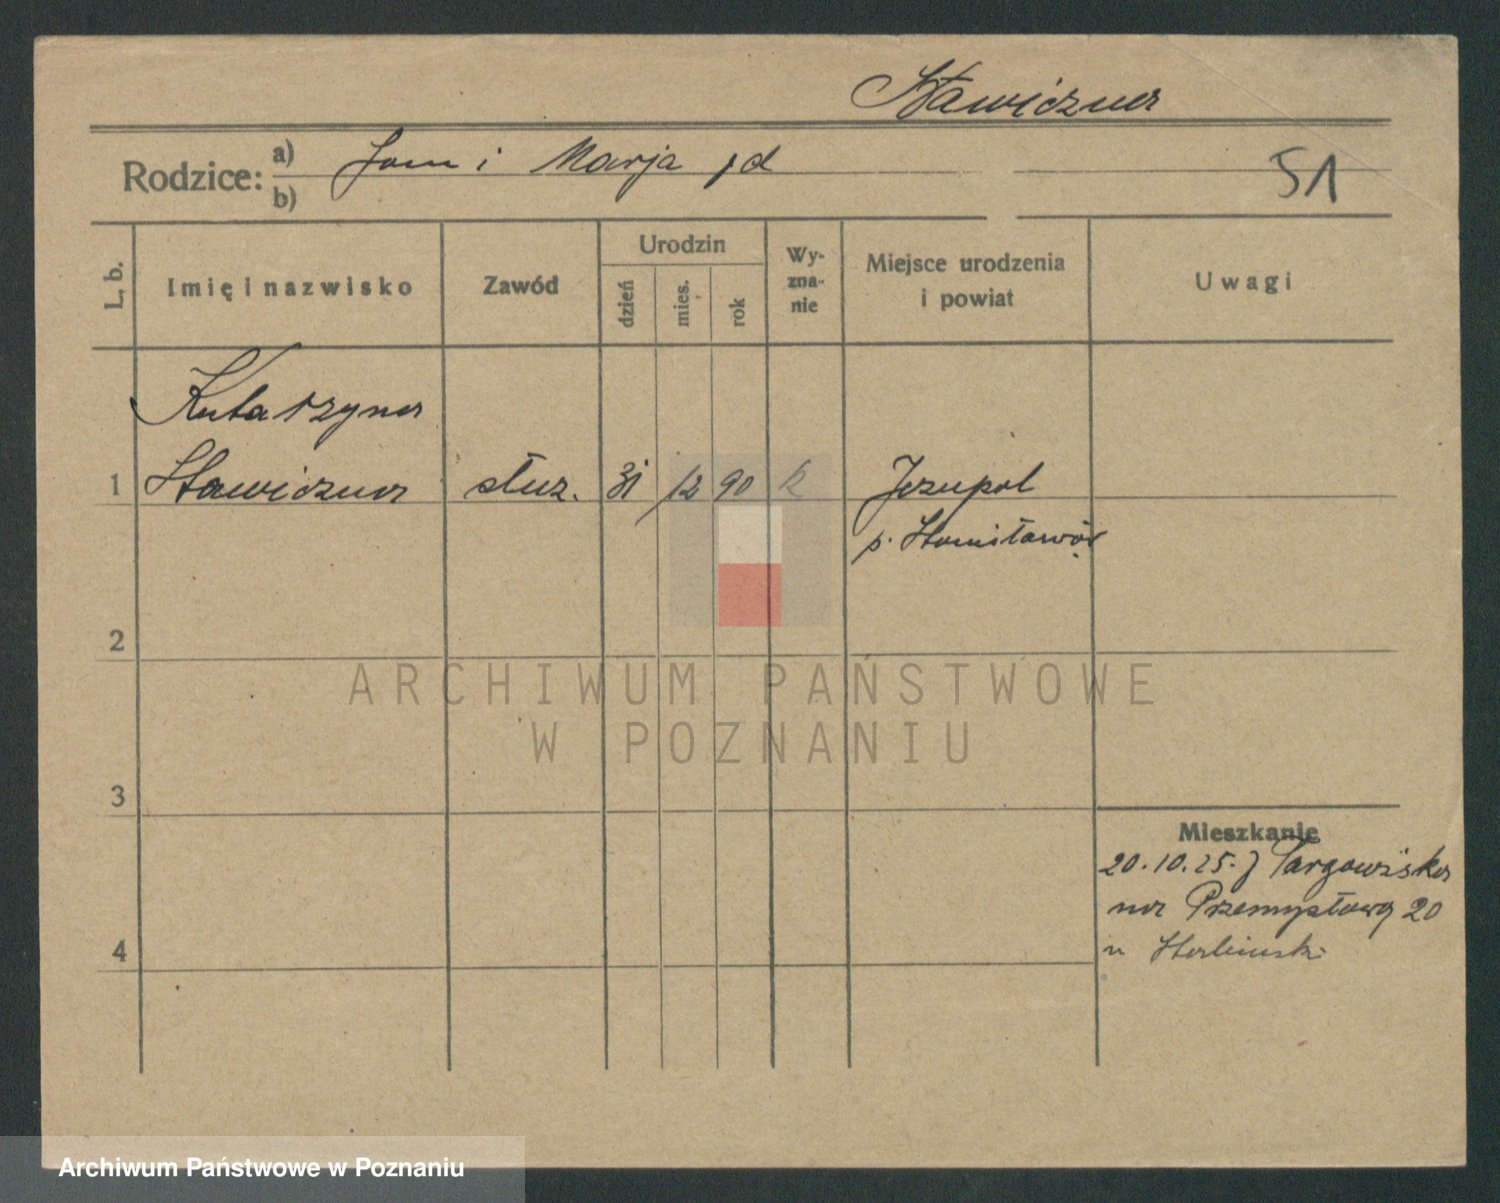 Sławiczna
Rodzice: a) Jan i Marja jd
b)
51
L. b.
Imię i nazwisko
Zawód
Urodzin
dzień
mies.
rok
Wy-
zna-
nie
Miejsce urodzenia
i powiat
Uwagi
Katarzyna
1 Sławiczna służ. 31 12 90 k Jezupol
p. Stanisławów
2
3
4
Mieszkanie
20.10.25. z Targowiska
na Przemysłową 20
u
ARCHIWUM PAŃSTWOWE
W POZNANIU
Archiwum Państwowe w Poznaniu